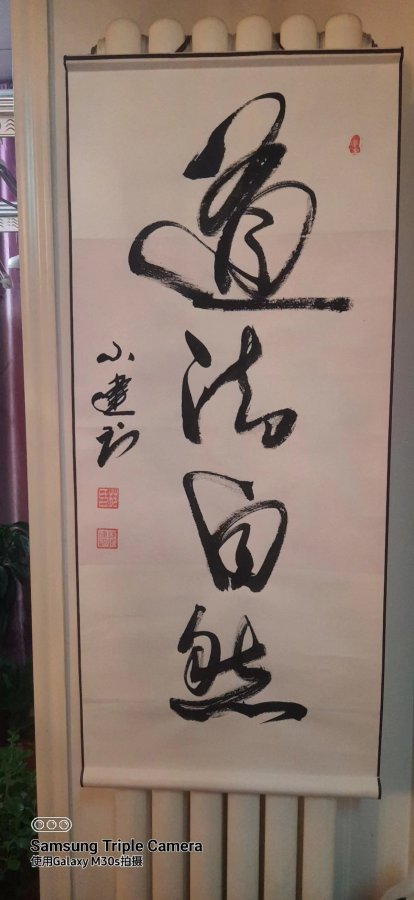 道法自然
Samsung Triple Camera
使用Galaxy M30s拍摄